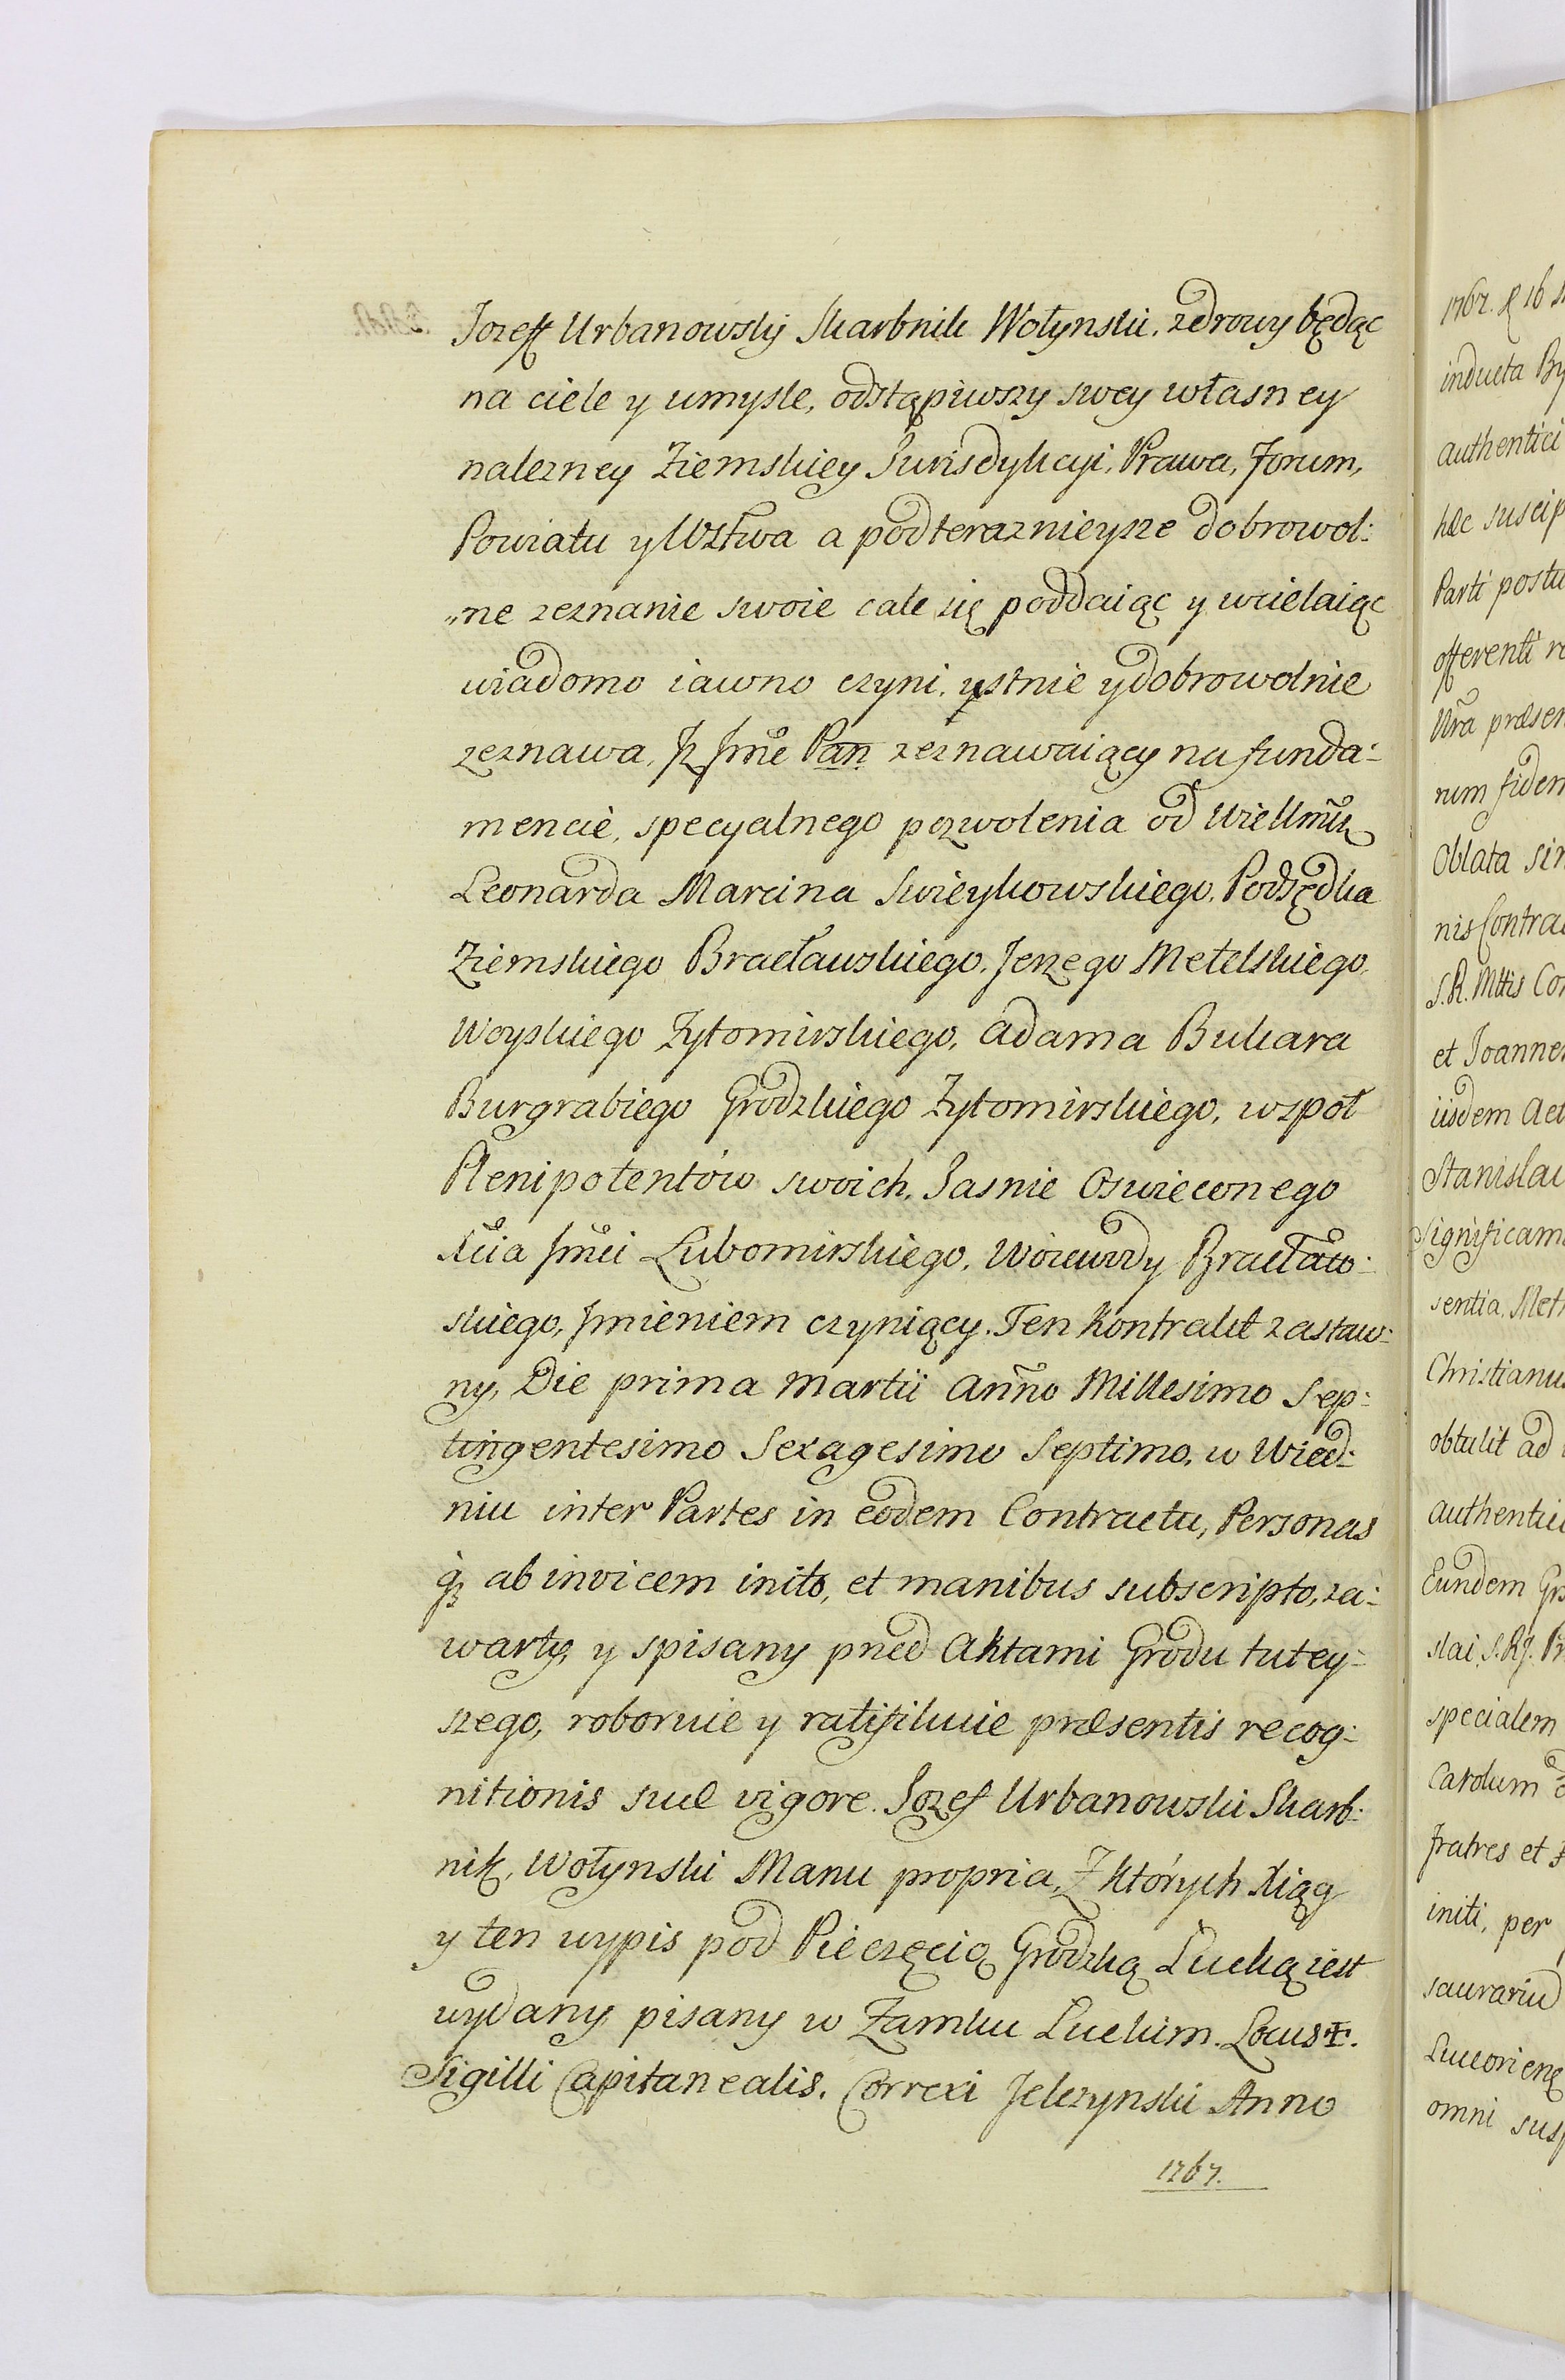 Jozeff Urbanowskij Skarbnik Wołynski, zdrowy będąc
na ciele y umysle, odstąpiwszy swey własney
nalezney Ziemskiey Jurisdykcyi, Prawa, Forum,
Powiatu y Wztwa a pod teraznieysze dobrowol:
„ne zeznanie swoie cale się poddaiąc y wcielaiąc
wiadomo iawno czyni, ystnie y dobrowolnie
zeznawa, Jż Jmć Pan zeznawaiący na funda:
mencie, specyalnego pozwolenia od Wiellmch
Leonarda Marcina Swieykowskiego, Podsędka
Ziemskiego Bracławskiego, Jerzego Metelskiego,
Woyskiego Zytomirskiego, Adama Bukara
Burgrabiego Grodzkiego Zytomirskiego, wspoł
Plenipotentów swoich, Jasnie Oswieconego
Xcia Jmci Lubomirskiego, Woiewody Bracław:
skiego, Jmieniem czyniący. Ten Kontrakt zastaw:
ny, Die prima Martii Anno Millesimo Sep:
tingentesimo Sexagesimo Septimo, w Wied:
niu inter Partes in eodem Contractu, Personas
q3 ab invicem inito, et manibus subscripto, za:
warty, y spisany przed Aktami Grodu tutey:
szego, roboruie y ratifikuie præsentis recog:
nitionis suæ vigore. Jozef Urbanowski Skarb:
nik, Wołynski Manu propria, Z których Xiąg
y ten wypis pod Pieczęcią Grodzką Lucką iest
wydany pisany w Zamku Luckim. Locus ✠.
Sigilli Capitanealis. Correxi Jelczynski Anno
1767.
1767. d 16
inducta
authentici
hæc
Parti
offerenti
Nra
rum fidem
Oblata
nis
S. R. Mttis
et
iisdem
sentia
obtulit ad
Eundem
slai
specialem
Carolum
fratres et
initi, per
omni